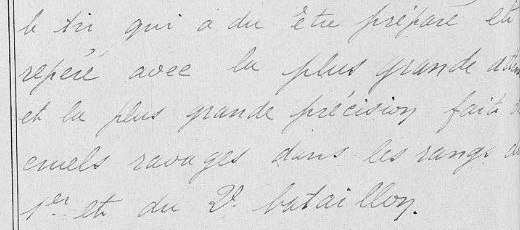 le tir qui a du être préparé et
repéré avec la plus grande
et la plus grande précision fait
cruels ravages dans les rangs
1er et du 2e bataillon.